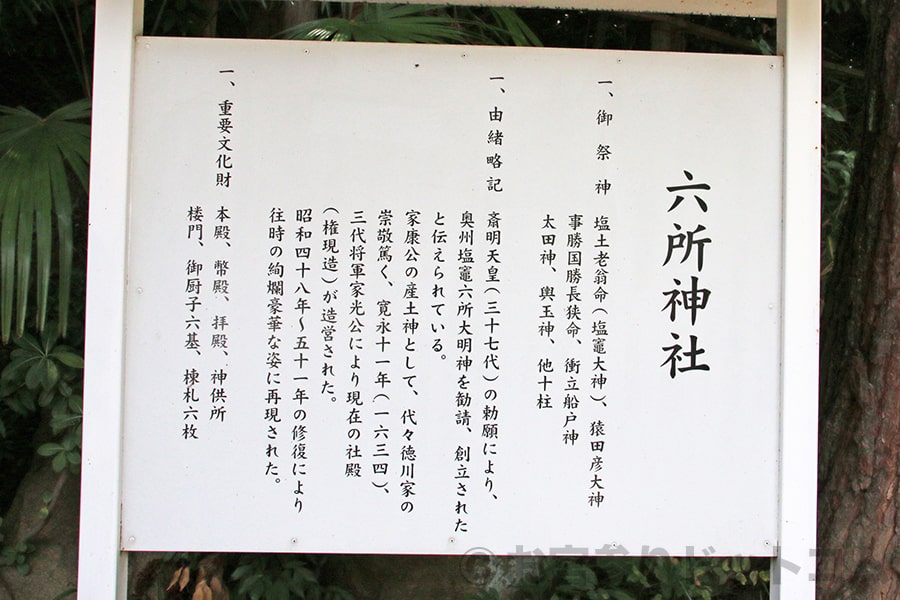 六所神社
一、御祭神　塩土老翁命（塩竈大神）、猿田彦大神
事勝国勝長狭命、衝立船戸神
太田神、興玉神、他十柱
一、由緒略記　斎明天皇（三十七代）の勅願により、
奥州塩竈六所大明神を勧請、創立された
と伝えられている。
家康公の産土神として、代々徳川家の
崇敬篤く、寛永十一年（一六三四）、
三代将軍家光公により現在の社殿
（権現造）が造営された。
昭和四十八年～五十一年の修復により
往時の絢爛豪華な姿に再現された。
一、重要文化財　本殿、幣殿、拝殿、神供所
楼門、御厨子六基、棟札六枚
©お宮参りドットコム